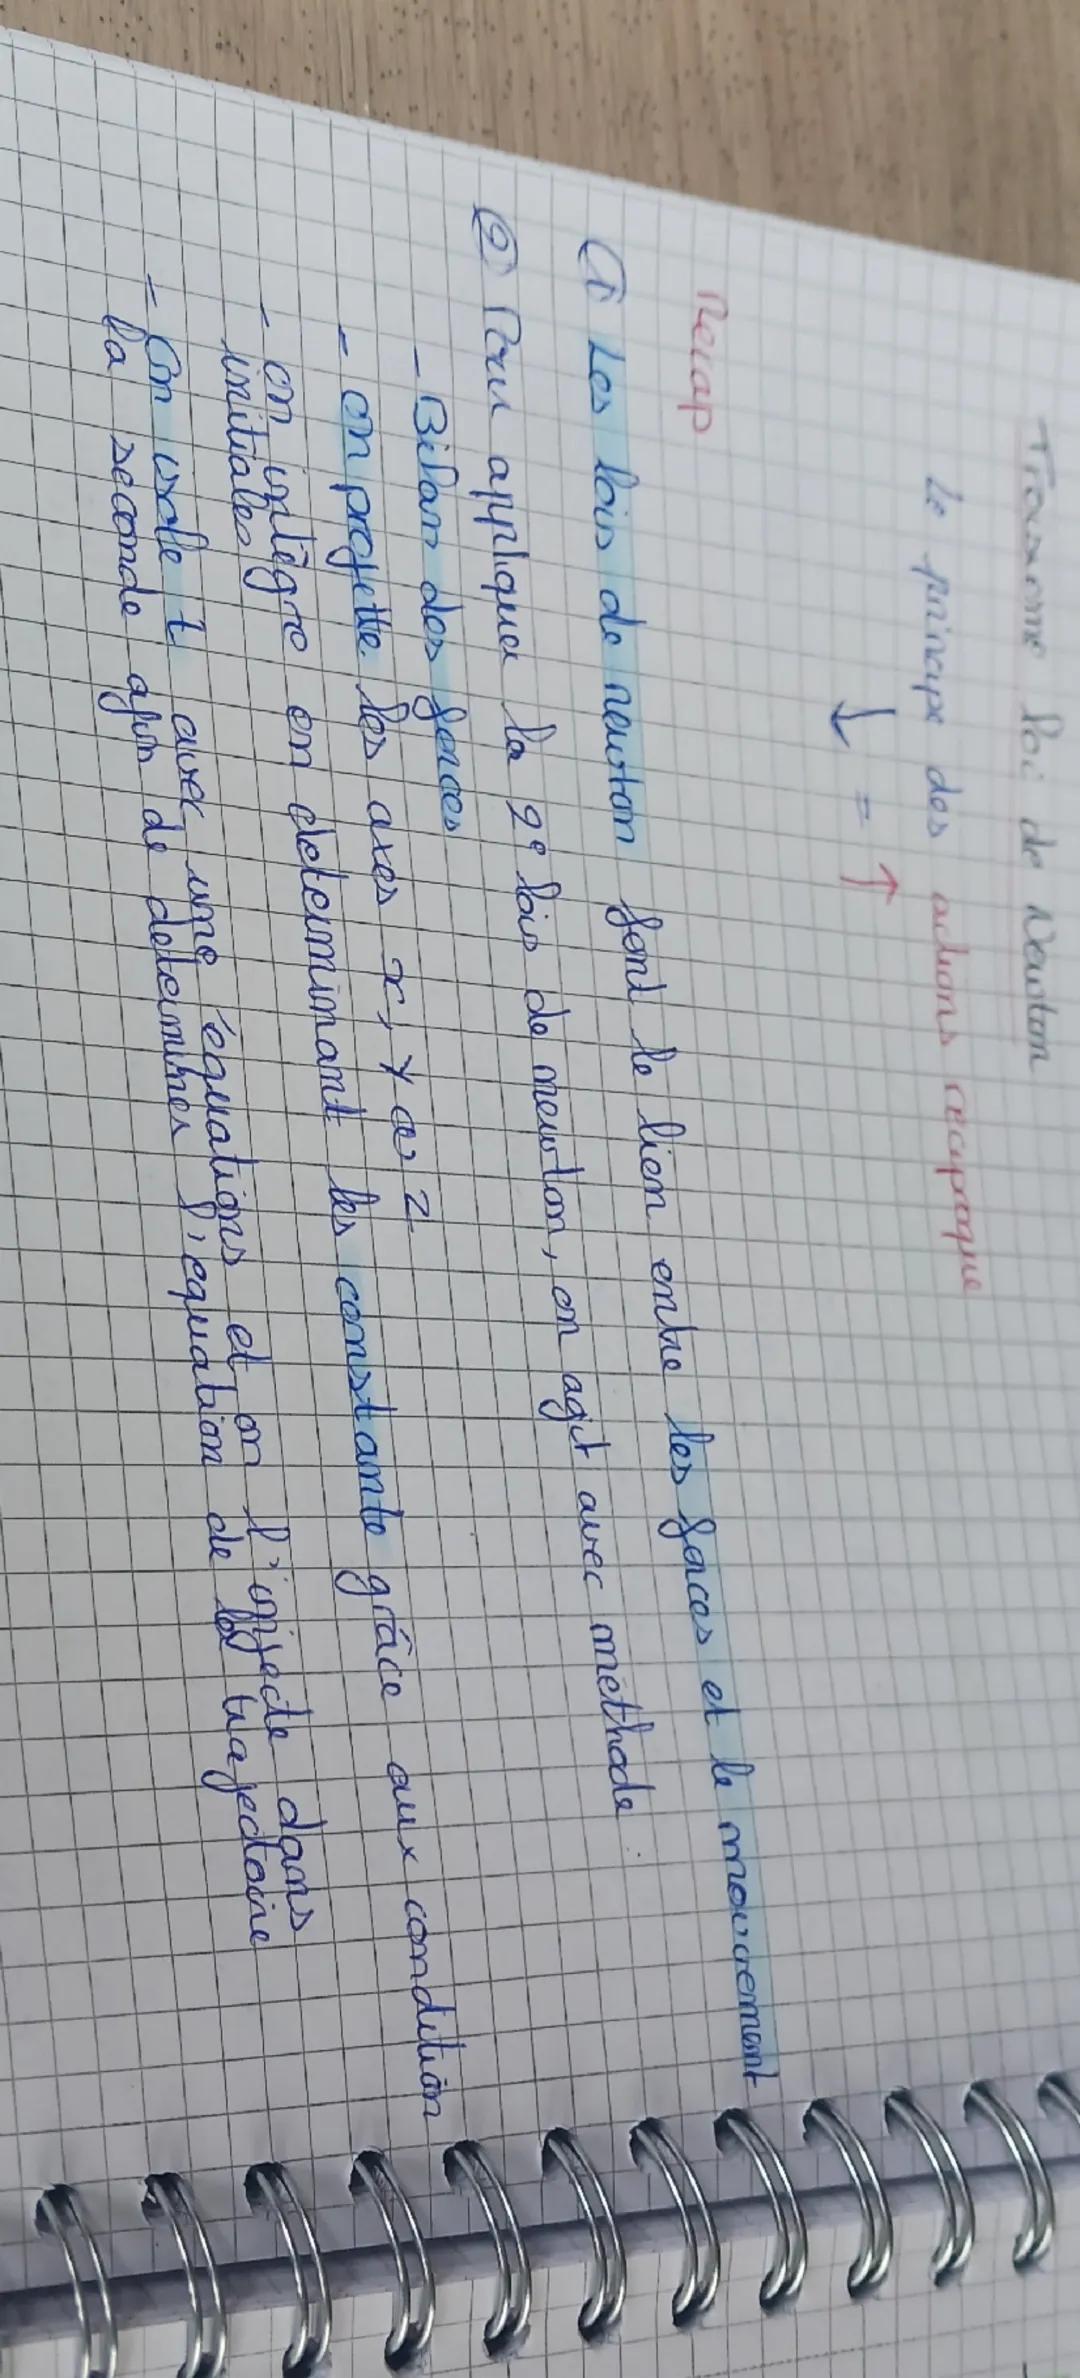 Troisième loi de Newton
Le principe des actions réciproque
↓ = ↑
Recap
① Les lois de newton font le lien entre les forces et le mouvement
② Pour appliquer la 2e lois de newton, on agit avec méthode :
- Bilan des forces
- on projette les axes x, y ou z
- on intègre en determinant les constante grâce aux condition
initiales
- On isole t avec une équations et on l'injecte dans
la seconde afin de determiner l'equation de la trajectoire